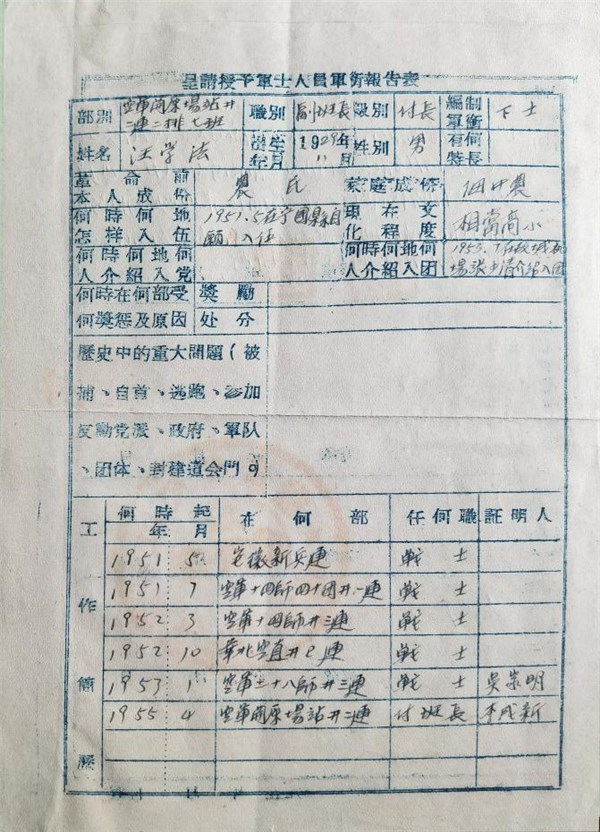 呈請授予軍士人員軍銜報告表
部別 空軍 場站 二連二排七班 職別 副班長 級別 付長 編制軍銜 下士
姓名 汪学法 產生年月 1929年11月 性別 男 有何特長
革命前本人成份 農民 家庭成份 佃中農
何時何地怎样入伍 1951.5在宁國縣自願入伍 現在文化程度 相當高小
何時何地何人介紹入党 何時何地何人介紹入团 1953. 場 介紹入团
何時在何部受何獎惩及原因 獎勵
处分
歷史中的重大問題(被
捕、自首、逃跑、参加
反動党派、政府、軍队
、团体、封建道会門)
工作簡歷 何時起 年 月 在何部 任何職 証明人
1951 5 安徽新兵連 戰士
1951 7 空軍十四師四十团 一連 戰士
1952 3 空軍十四師 三連 戰士
1952 10 華北空直 連 戰士
1953 1 空軍二十八師 三連 戰士 吳崇明
1955 4 空軍 場站 二連 付班長 李成新